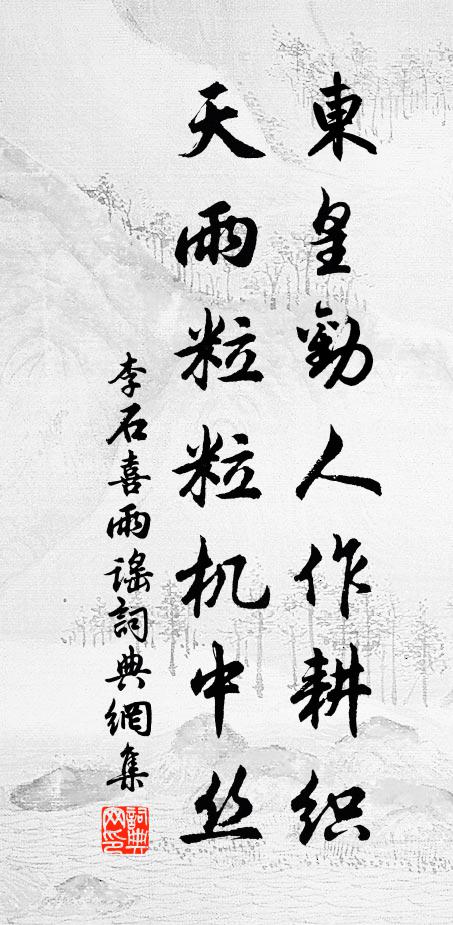 東皇勸人作耕织
天雨粒粒机中丝
李石喜雨謠詞典網集
詞典
网印